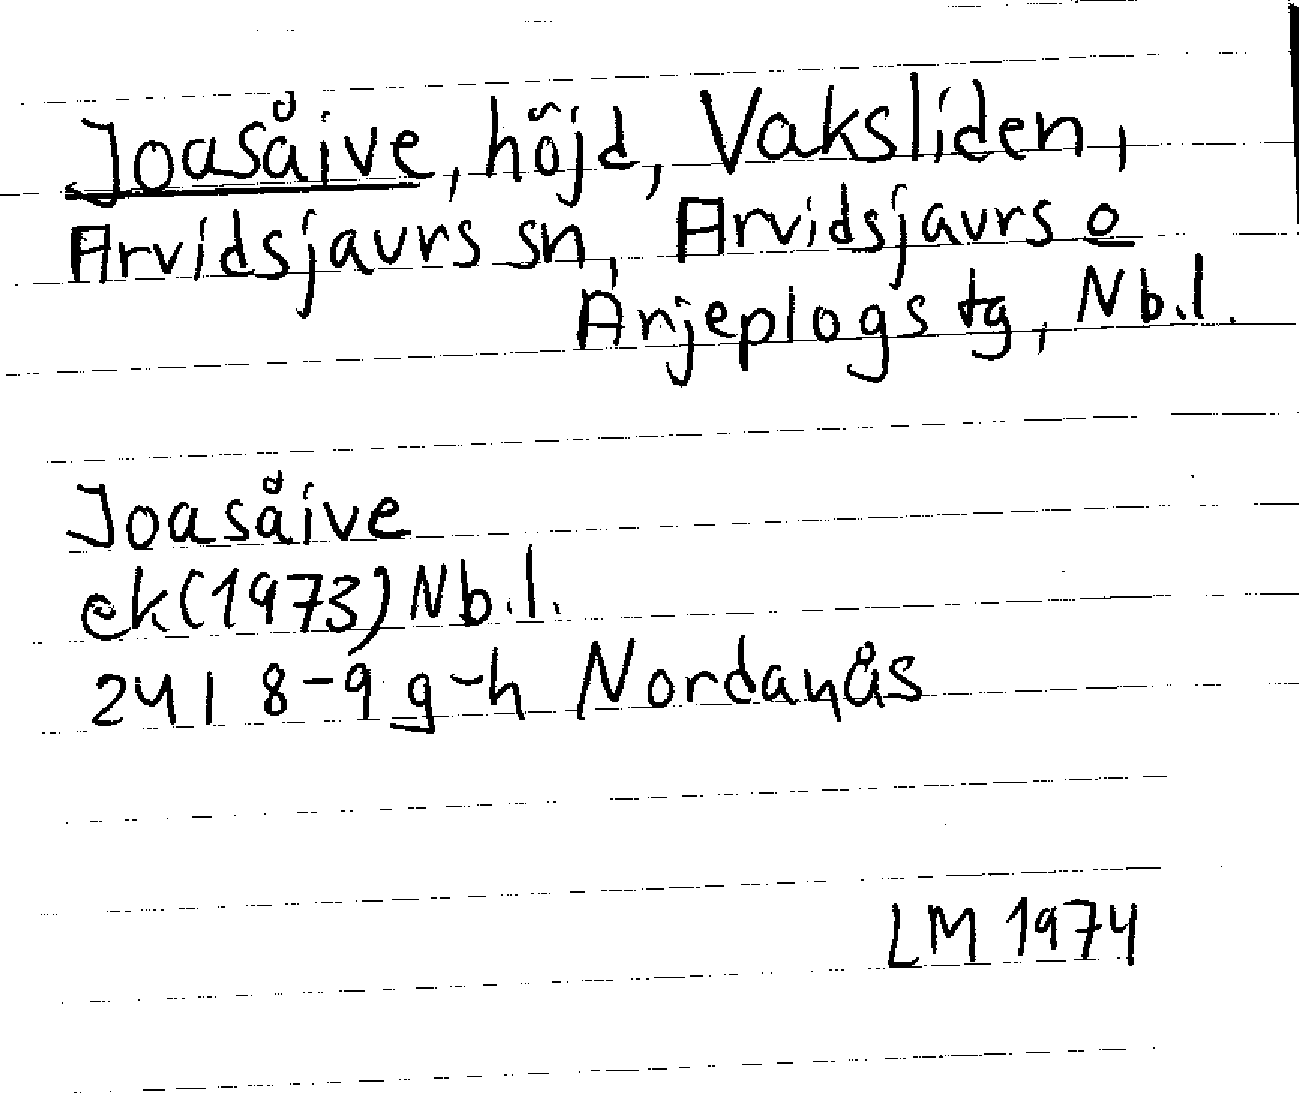 Joasåive, höjd, Vaksliden,
Arvidsjaurs sn, Arvidsjaurs o
Arjeplogs tg, Nb.l.
Joasåive
ek(1973)Nb.l.
24I 8-9 g-h Nordanås
LM 1974